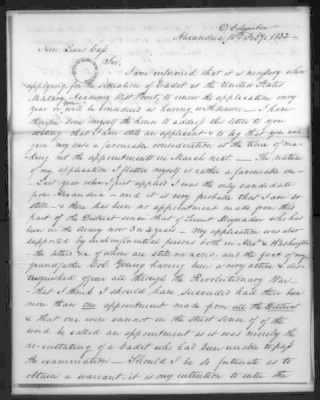 D. Columbia
Alexandria, 10th Feby. 1832 —
Hon. Lewis Cass
Sir,
I am informed that it is necessary when
applying for the situation of Cadet at the United States
Military Academy West Point, to renew the application every
year or will be considered as having withdrawn — I have
therefore done myself the honor to address this letter to you
stating that I am still an applicant & to beg that you will
give my case a favorable consideration at the time of ma-
king out the appointments in March next. — The nature
of my application I flatter myself is rather a favorable one —
Last year when I first applied I was the only candidate
from Alexandria — and it is very probable that I am so
still — & there has been no appointment made from this
part of the District since that of Lieut. who has
been in the army now 3 or 4 years — My application was also
supported by such influential persons both in Alex. & Washington
the letters &c of whom are still on record — and the fact of my
grandfather Col. having been a very active & dis-
tinguished officer all through the Revolutionary War —
that I think I should have succeeded had there been
more than one appointment made from all the District
& that one even cannot in the strict sense of the
word be called an appointment as it was merely the
re-instating of a Cadet who had been unable to pass
the examination — Should I be so fortunate as to
obtain a warrant it is my intention to enter the